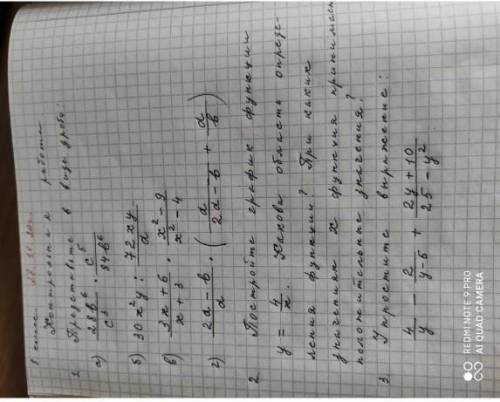 Контрольная работа
1. Представьте в виде дроби:
а) 28b⁶/c³ · c⁵/84b⁶
б) 30x²y : 72xy/a
в) 3x+6/x+3 · x²-9/x²-4
г) 2a-b/a · (a/2a-b + a/b)
2. Постройте график функции
y = 4/x. Какова область опреде-
ления функции? При каких
значениях x функция принимает
положительные значения?
3. Упростите выражение:
4/y - 2/y-5 + 2y+10/25-y²
REDMI NOTE 9 PRO
AI QUAD CAMERA